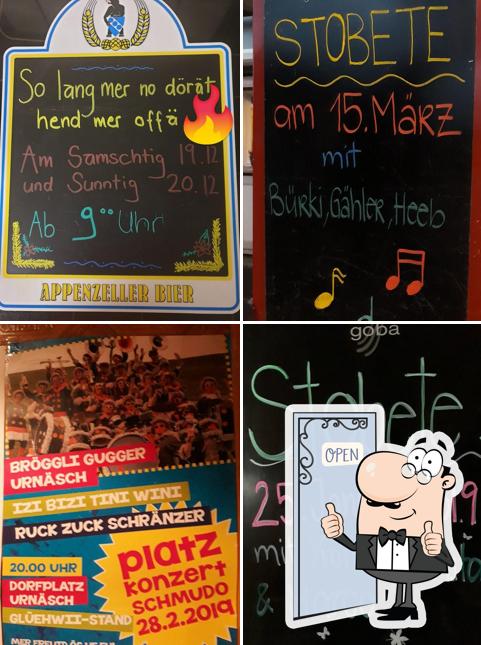 So lang mer no dörät
hend mer offä
Am Samschtig 19.12
und Sunntig 20.12
Ab 9⁰⁰ Uhr
APPENZELLER BIER
STOBETE
am 15. März
mit
Bürki, Gähler, Heeb
BRÖGGLI GUGGER
URNÄSCH
IZI BIZI TINI WINI
RUCK ZUCK SCHRÄNZER
20.00 UHR
DORFPLATZ
URNÄSCH
GLÜEHWII-STAND
platz
konzert
SCHMUDO
28.2.2019
goba
Stobete
25
OPEN
&